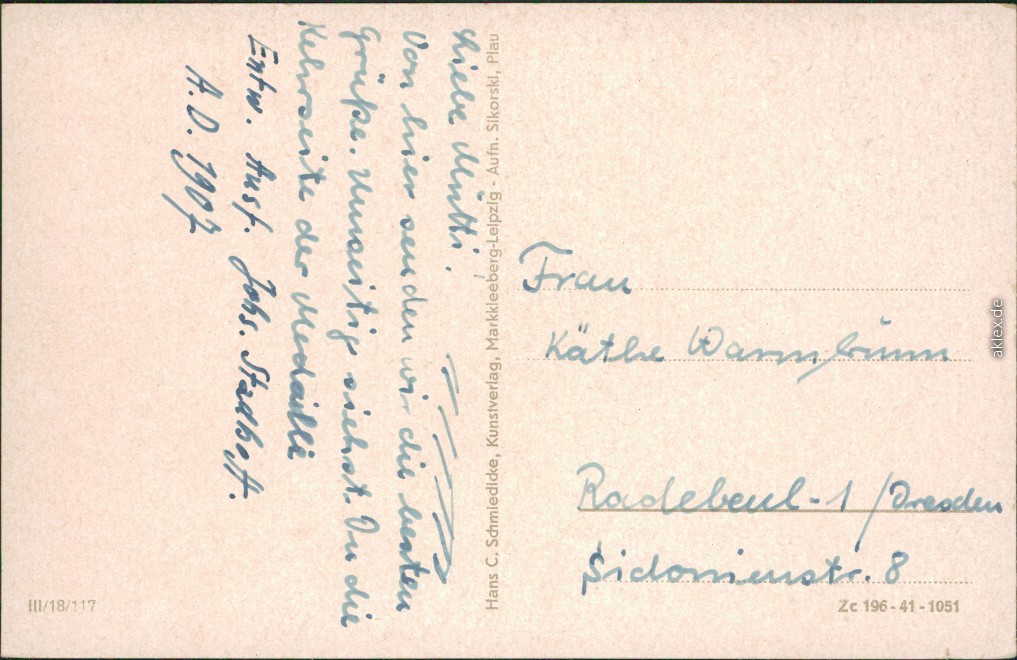 Liebe Mutti!
Von hier senden wir die besten
Grüße. Umseitig siehst Du die
Kehrseite der Medaille
Entw. Ausf. Johs. Stadb
A.D. 1907
Hans C. Schmiedicke, Kunstverlag, Markkleeberg-Leipzig - Aufn. Sikorski, Plau
Frau
Käthe Warmbrunn
Radebeul-1 /Dresden
Sidonienstr. 8
III/18/117
Zc 196-41-1051
aklex.de